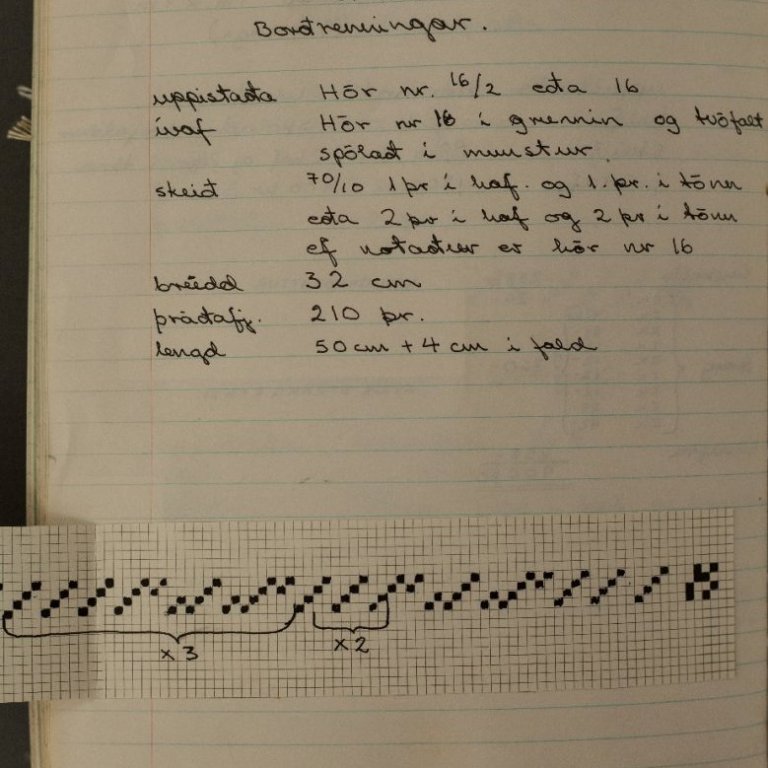 Borðrenningar.
uppistaða Hör nr. 16/2 eða 16
ívaf Hör nr 16 í grunnin og tvöfalt
spólað í munstur.
skeið 70/10 1 þr í haf. og 1. þr. í tönn
eða 2 þr í haf og 2 þr í tönn
ef notaður er hör nr 16
breidd 32 cm
þráðafj. 210 þr.
lengd 50 cm + 4 cm í fald
x 3
x 2